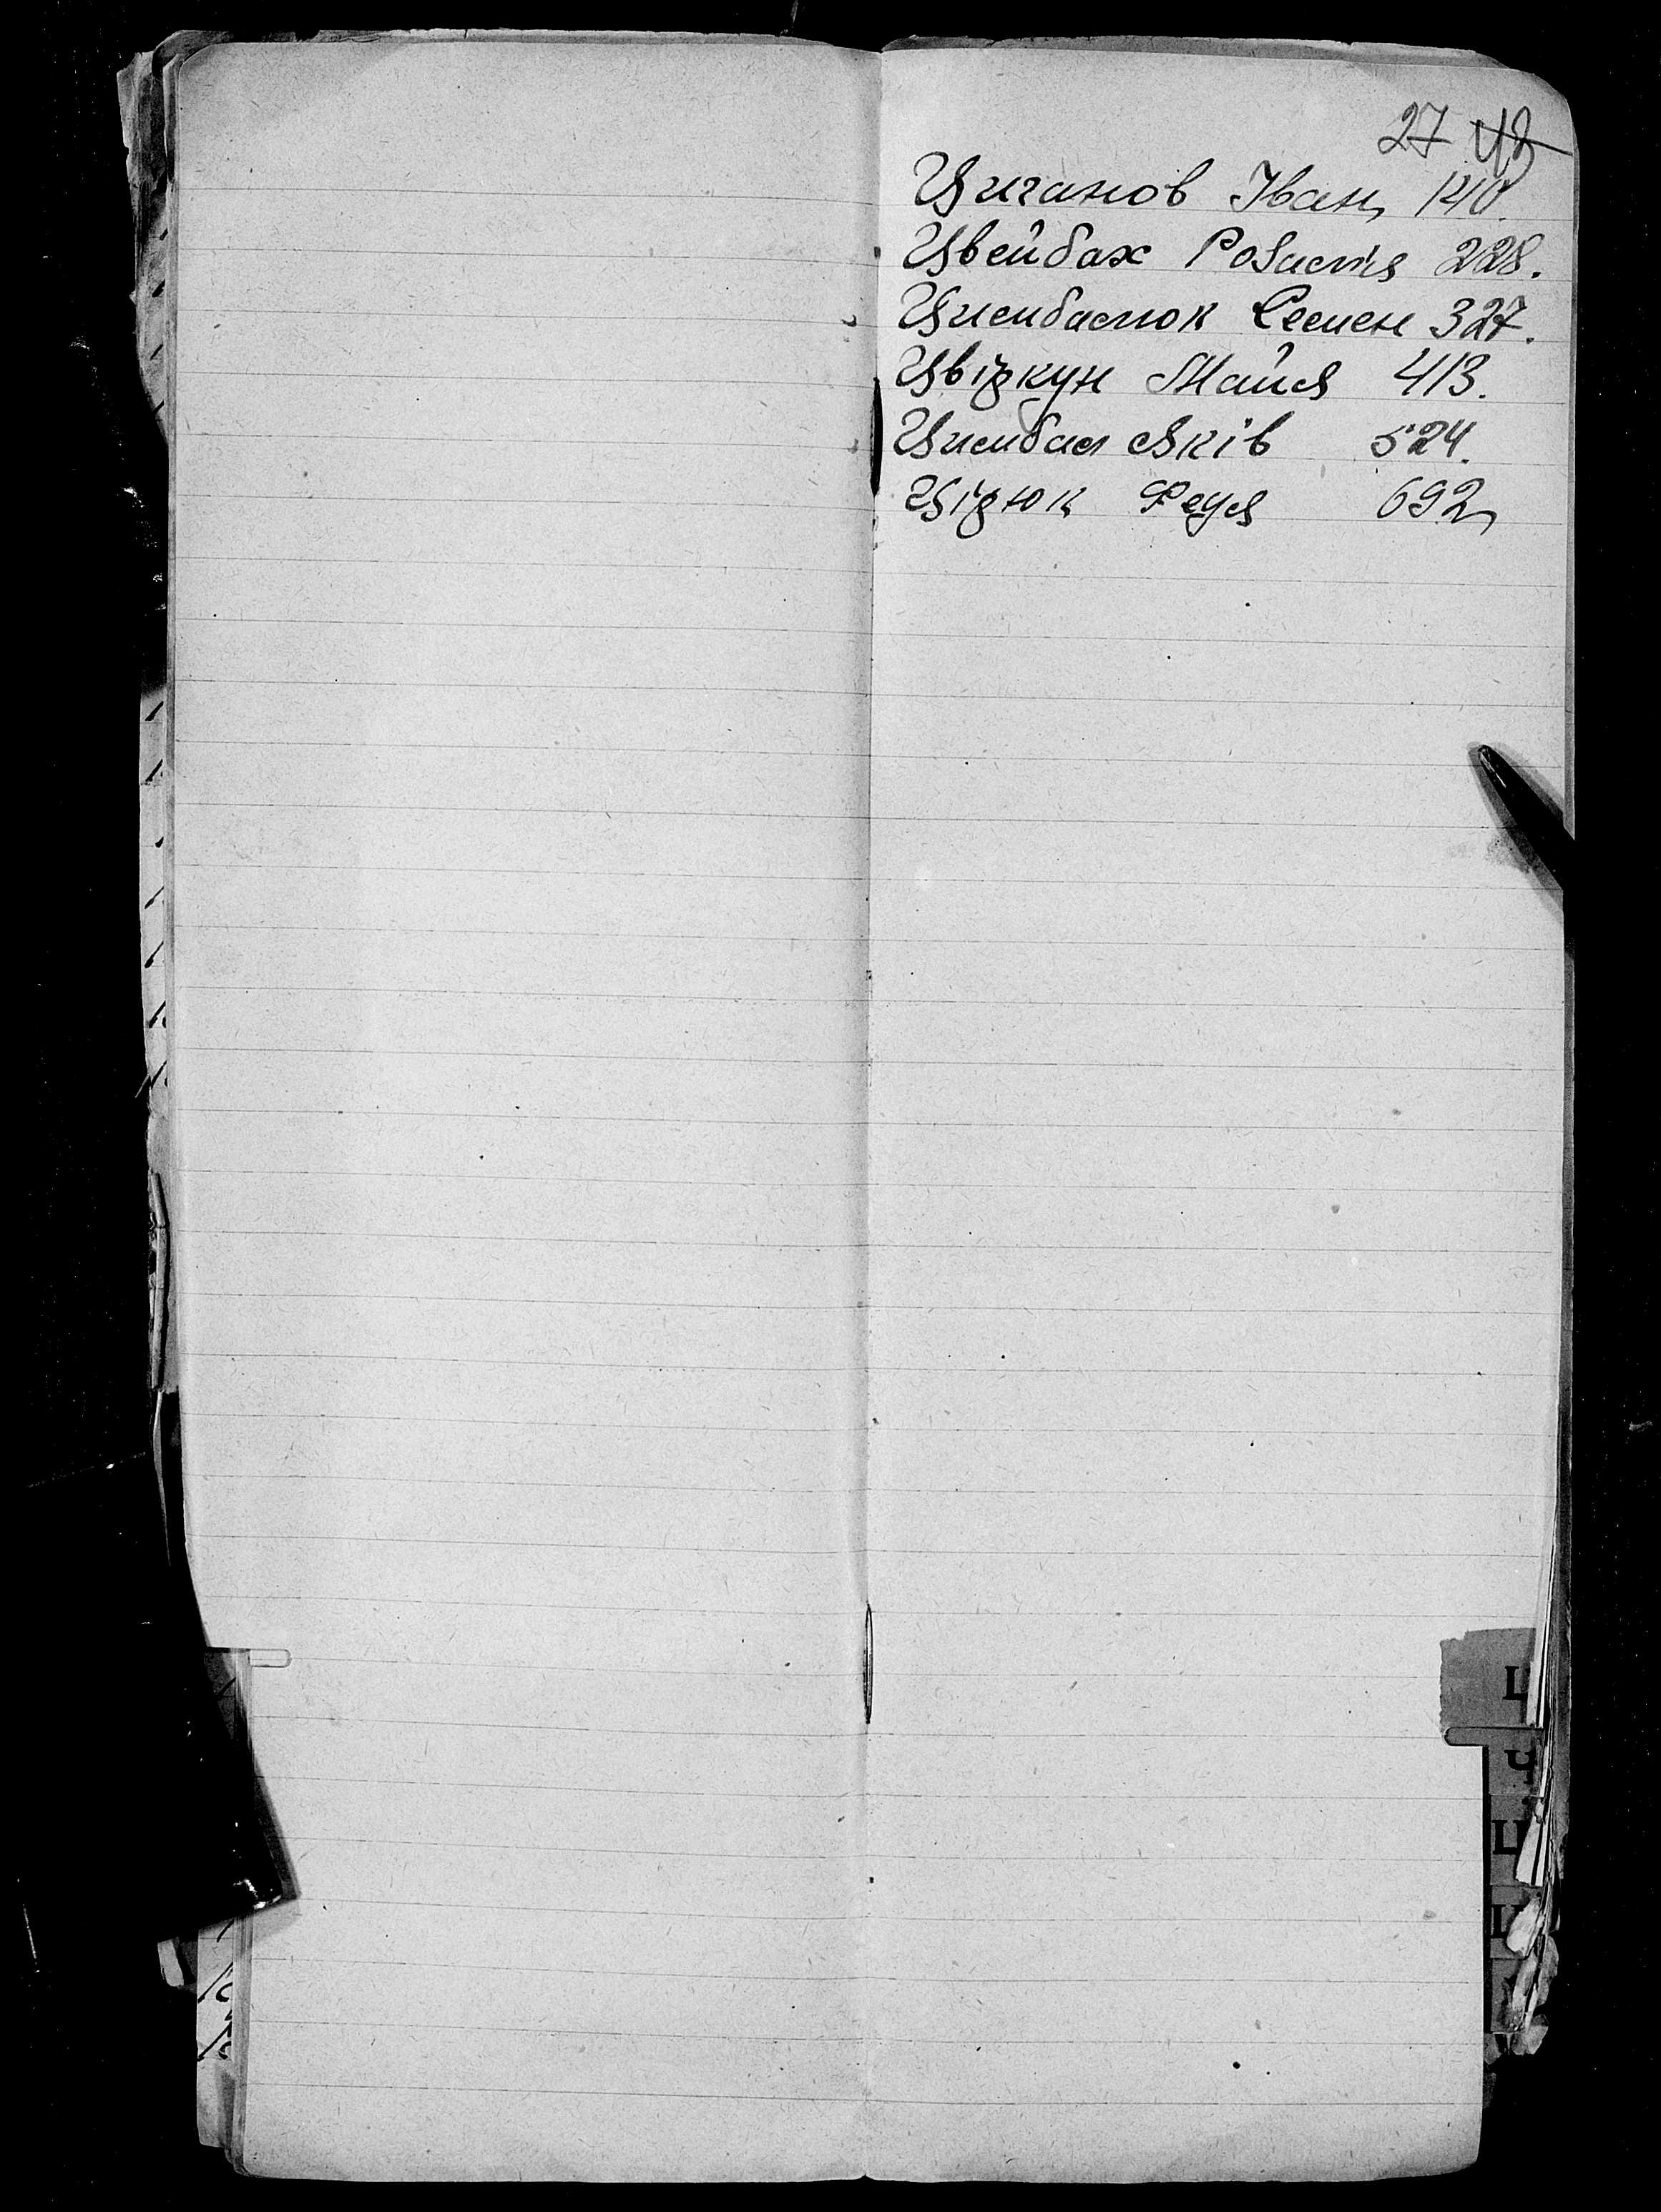 27 ~~43~~
Циганов Іван 140.
Цвейбах Розалія 228.
Цимбалюк Семен 327.
Цвіркун Майя 413.
Цимбал Яків 524.
Цірюк Феня 692
Ч